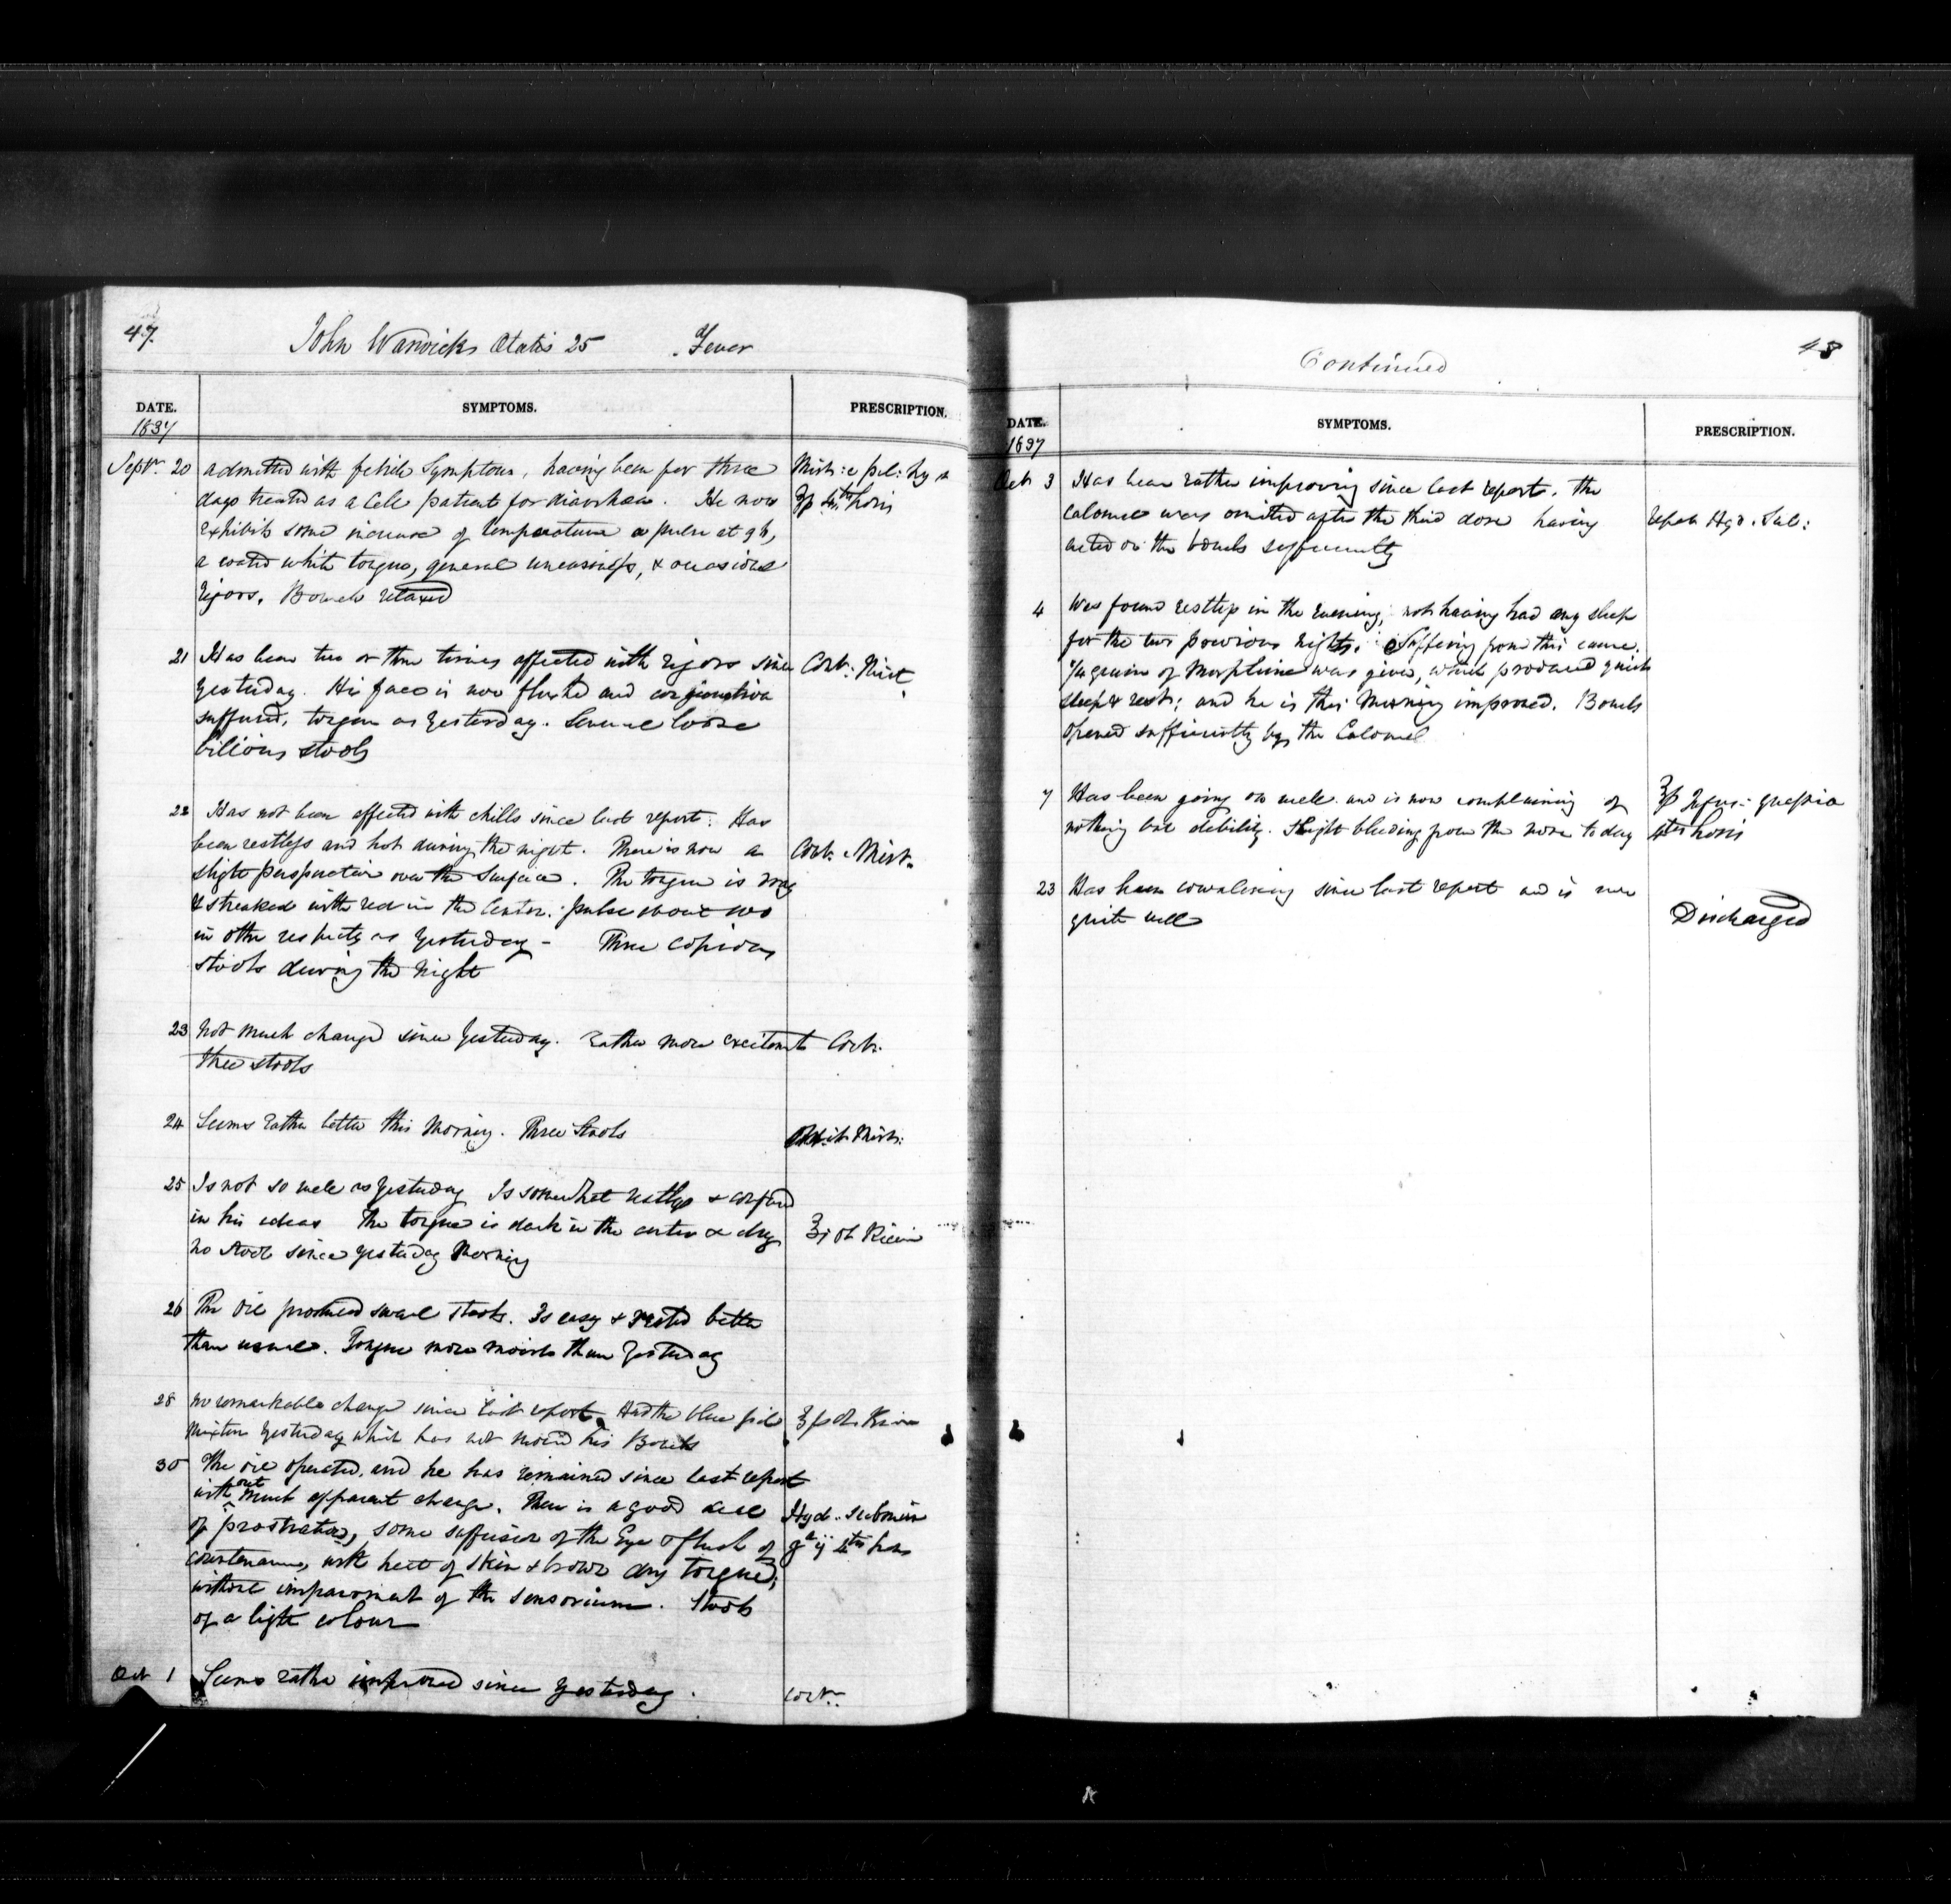 47.
John Warwick Ætatis 25 Fever
DATE. SYMPTOMS. PRESCRIPTION.
1837
Septr. 20 admitted with febrile Symptoms, having been for three Mist: c pil: hyd
days treated as a Cell patient for diarrhoea. He now ℥p 4th horis
exhibits some increase of temperature a pulse at 96,
a coated white tongue, general uneasiness, & occasional
rigors. Bowels relaxed
21 Has been two or three times affected with rigors since Cont: Mist.
yesterday. His face is now flushed and conjunctiva
suffused, tongue as yesterday. Several loose
bilious stools
22 Has not been affected with chills since last report. Has
been restless and hot during the night. There is now a Cont. Mist.
slight perspiration over the surface. The tongue is dry
& streaked with red in the Center. pulse about 100
in other respects as yesterday - Three copious
stools during the night
23 Not much change since yesterday. Rather more excitement Cont.
three stools
24 Seems rather better this Morning. Three Stools Omit Mist:
25 Is not so well as yesterday Is somewhat restless & confused
in his ideas The tongue is dark in the center & dry ℥i Ol Ricini
no stool since yesterday Morning
26 The Oil produced several stools. Is easy & rested better
than usual. Tongue more moist than yesterday
28 no remarkable change since last report. Had the blue pill ℥p Ol Ricini
mixture yesterday which has not moved his Bowels
30 The oil operated, and he has remained since last report
without much apparent change. There is a good deal Hyd. submur
of prostration, some suffusion of the Eye & flush of gr ij 4tis horis
countenance, with heat of skin & brown dry tongue;
without impairment of the sensorium. Stools
of a light colour
Oct 1 Seems rather improved since yesterday. Cont.
48
Continued
DATE. SYMPTOMS. PRESCRIPTION.
1837
Oct 3 Has been rather improving since last report. The
calomel was omitted after the third dose having Repet Hyd. Sub:
acted on the bowels sufficiently
4 Was found restless in the evening, not having had any sleep
for the two previous nights. Suffering from this cause.
1/4 grain of Morphine was given, which produced quiet
sleep & rest; and he is this Morning improved. Bowels
opened sufficiently by the Calomel
7 Has been going on well and is now complaining of ℥p Infus: quassia
nothing but debility. Slight bleeding from the nose today 4ter horis
23 Has been convalescing since last report and is now
quite well Discharged